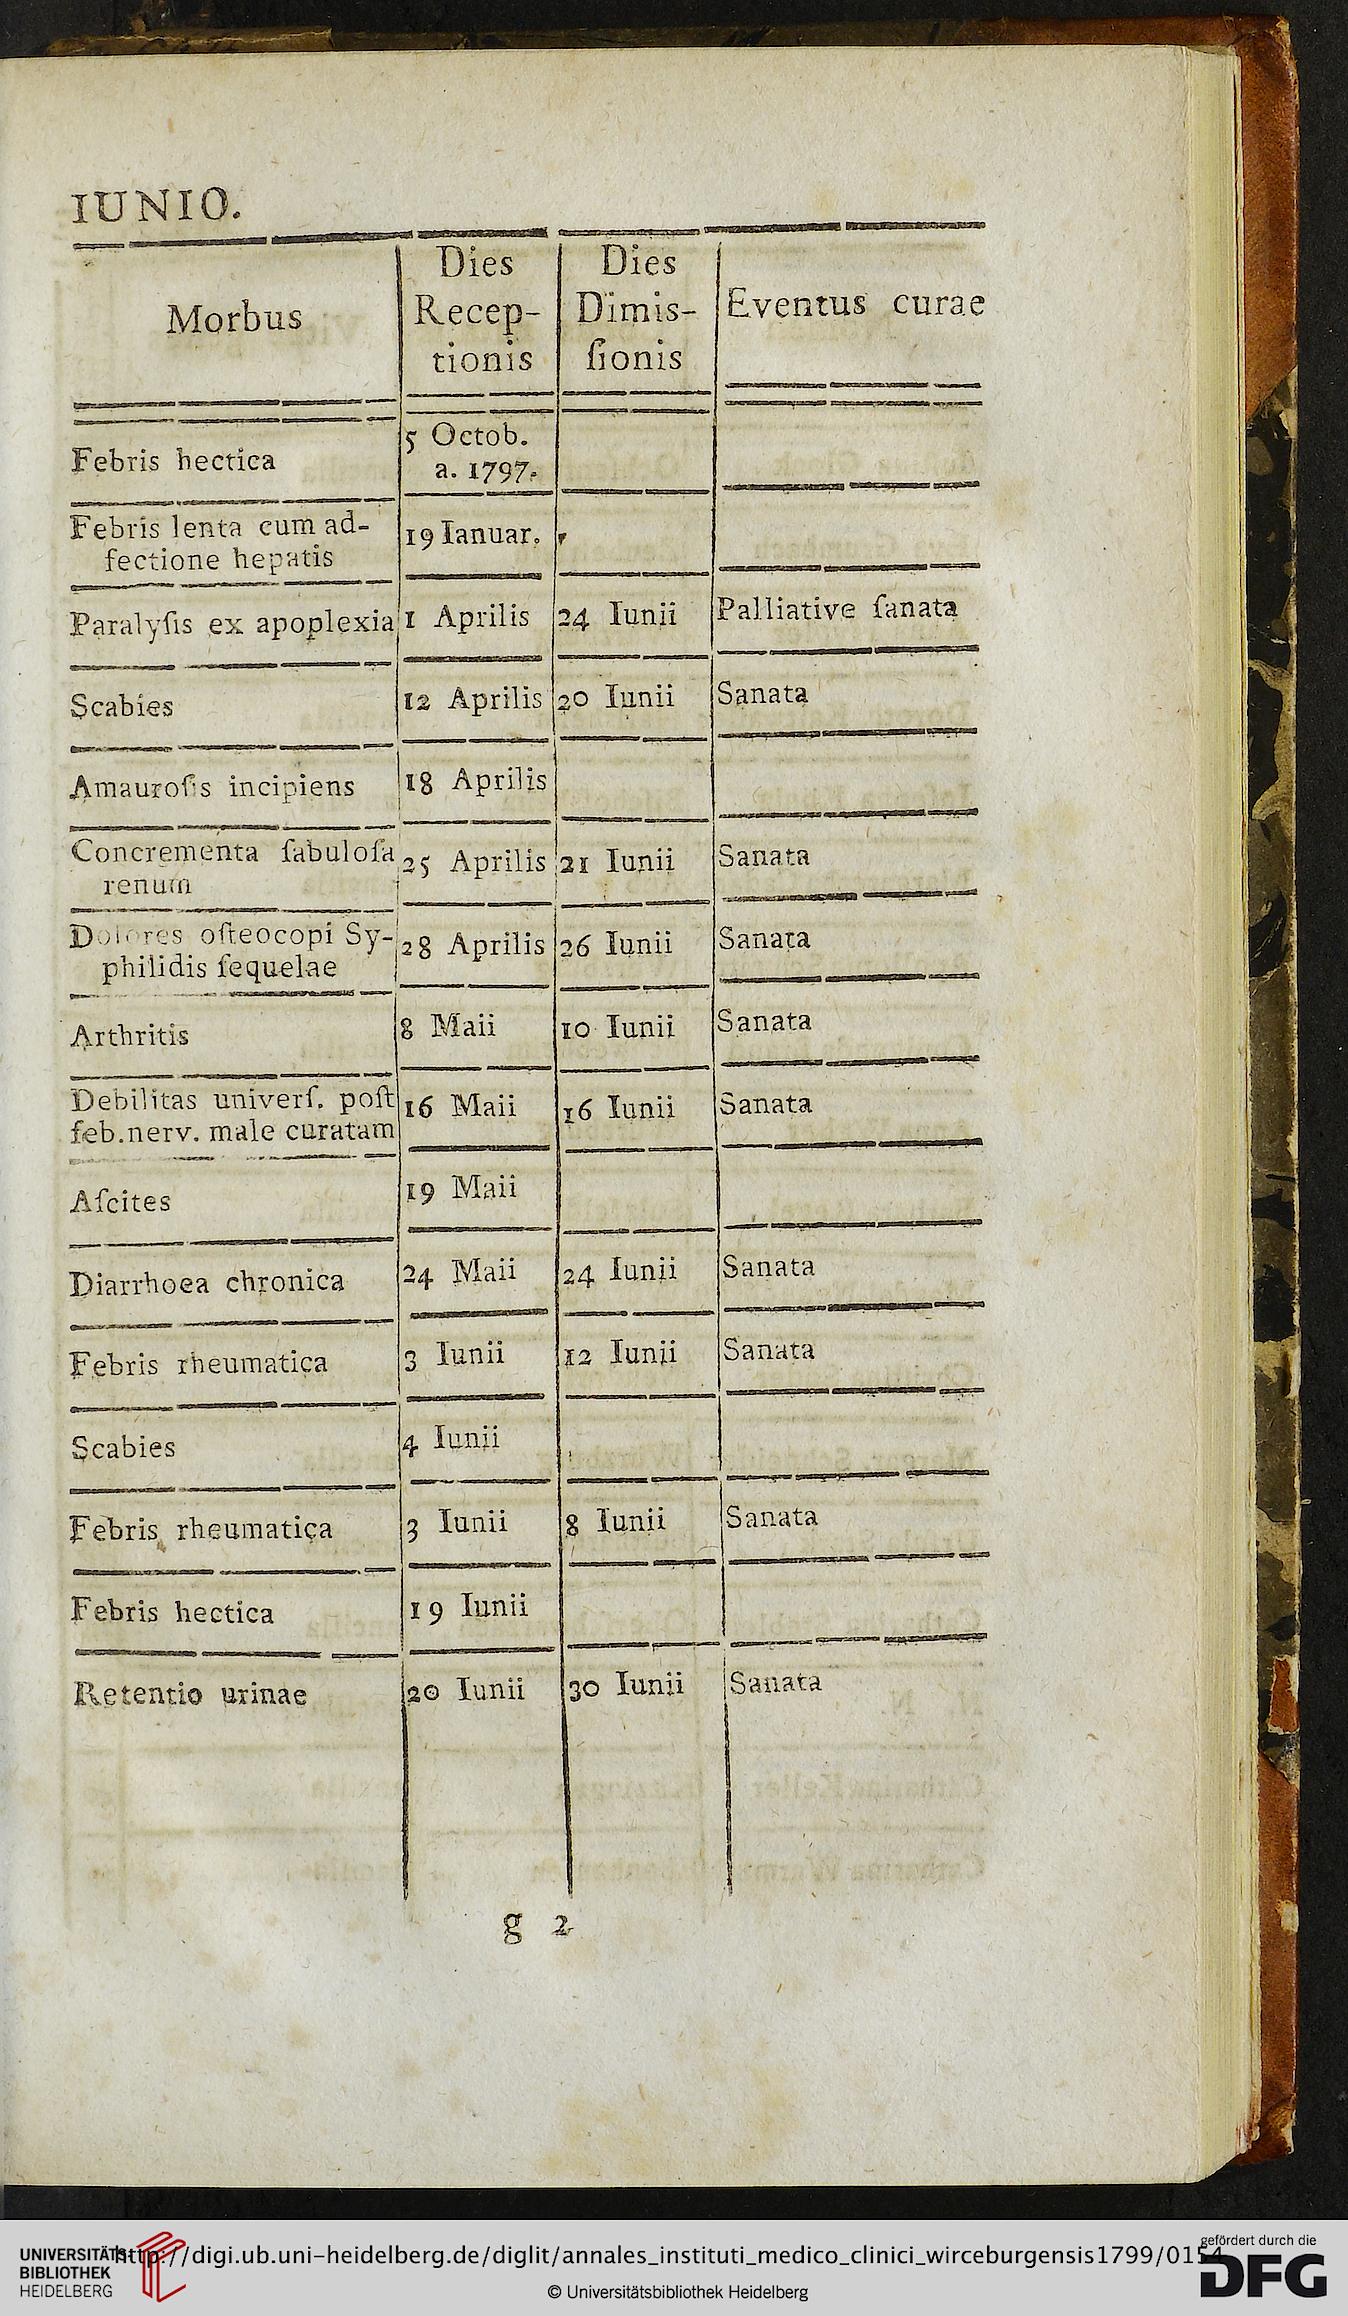 IUNIO.
Morbus | Dies Recep- tionis | Dies Dimis- ſionis | Eventus curae
Febris hectica | 5 Octob. a. 1797. | |
Febris lenta cum ad- fectione hepatis | 19 Ianuar. | |
Paralyſis ex apoplexia | 1 Aprilis | 24 Iunii | Palliative ſanata
Scabies | 12 Aprilis | 20 Iunii | Sanata
Amauroſis incipiens | 18 Aprilis | |
Concrementa ſabuloſa renum | 25 Aprilis | 21 Iunii | Sanata
Dolores oſteocopi Sy- philidis ſequelae | 28 Aprilis | 26 Iunii | Sanata
Arthritis | 8 Maii | 10 Iunii | Sanata
Debilitas univerſ. poſt feb. nerv. male curatam | 16 Maii | 16 Iunii | Sanata
Aſcites | 19 Maii | |
Diarrhoea chronica | 24 Maii | 24 Iunii | Sanata
Febris rheumatica | 3 Iunii | 12 Iunii | Sanata
Scabies | 4 Iunii | |
Febris rheumatica | 3 Iunii | 8 Iunii | Sanata
Febris hectica | 19 Iunii | |
Retentio urinae | 20 Iunii | 30 Iunii | Sanata
g 2
UNIVERSITÄTS-
BIBLIOTHEK
HEIDELBERG
http://digi.ub.uni-heidelberg.de/diglit/annales_instituti_medico_clinici_wirceburgensis1799/0154
© Universitätsbibliothek Heidelberg
gefördert durch die
DFG